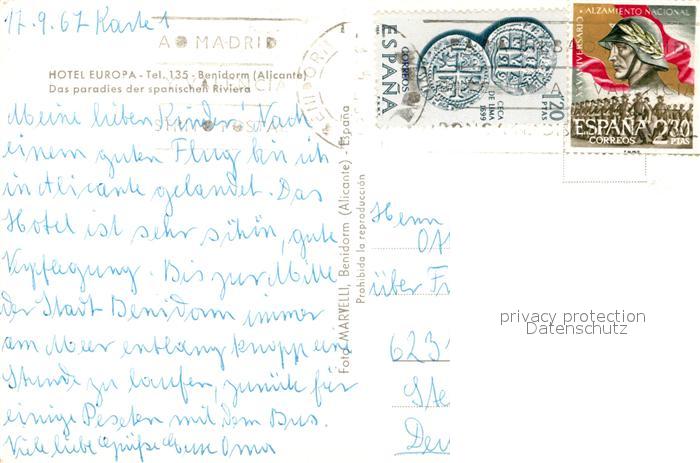 17.9.67 Karte 1
A MADRID
HOTEL EUROPA - Tel. 135 - Benidorm (Alicante)
Das paradies der spanischen Riviera
Meine lieben Kinder! Nach
einem guten Flug bin ich
in Alicante gelandet. Das
Hotel ist sehr schön, gute
Verpflegung. Bis zur Mitte
der Stadt Benidorm immer
am Meer entlang knapp eine
Stunde zu laufen, zurück für
einige Peseten mit dem Bus.
Viele liebe Grüße Eure Oma
Foto MARVELLI, Benidorm (Alicante) - España
Prohibida la reproducción
ESPAÑA
CORREOS
CECA
DE LIMA
1699
1'20
PTAS
XXV ANIVERSARIO ALZAMIENTO NACIONAL
ESPAÑA 2'30
CORREOS PTAS
Herrn
über Fr
623
privacy protection
Datenschutz